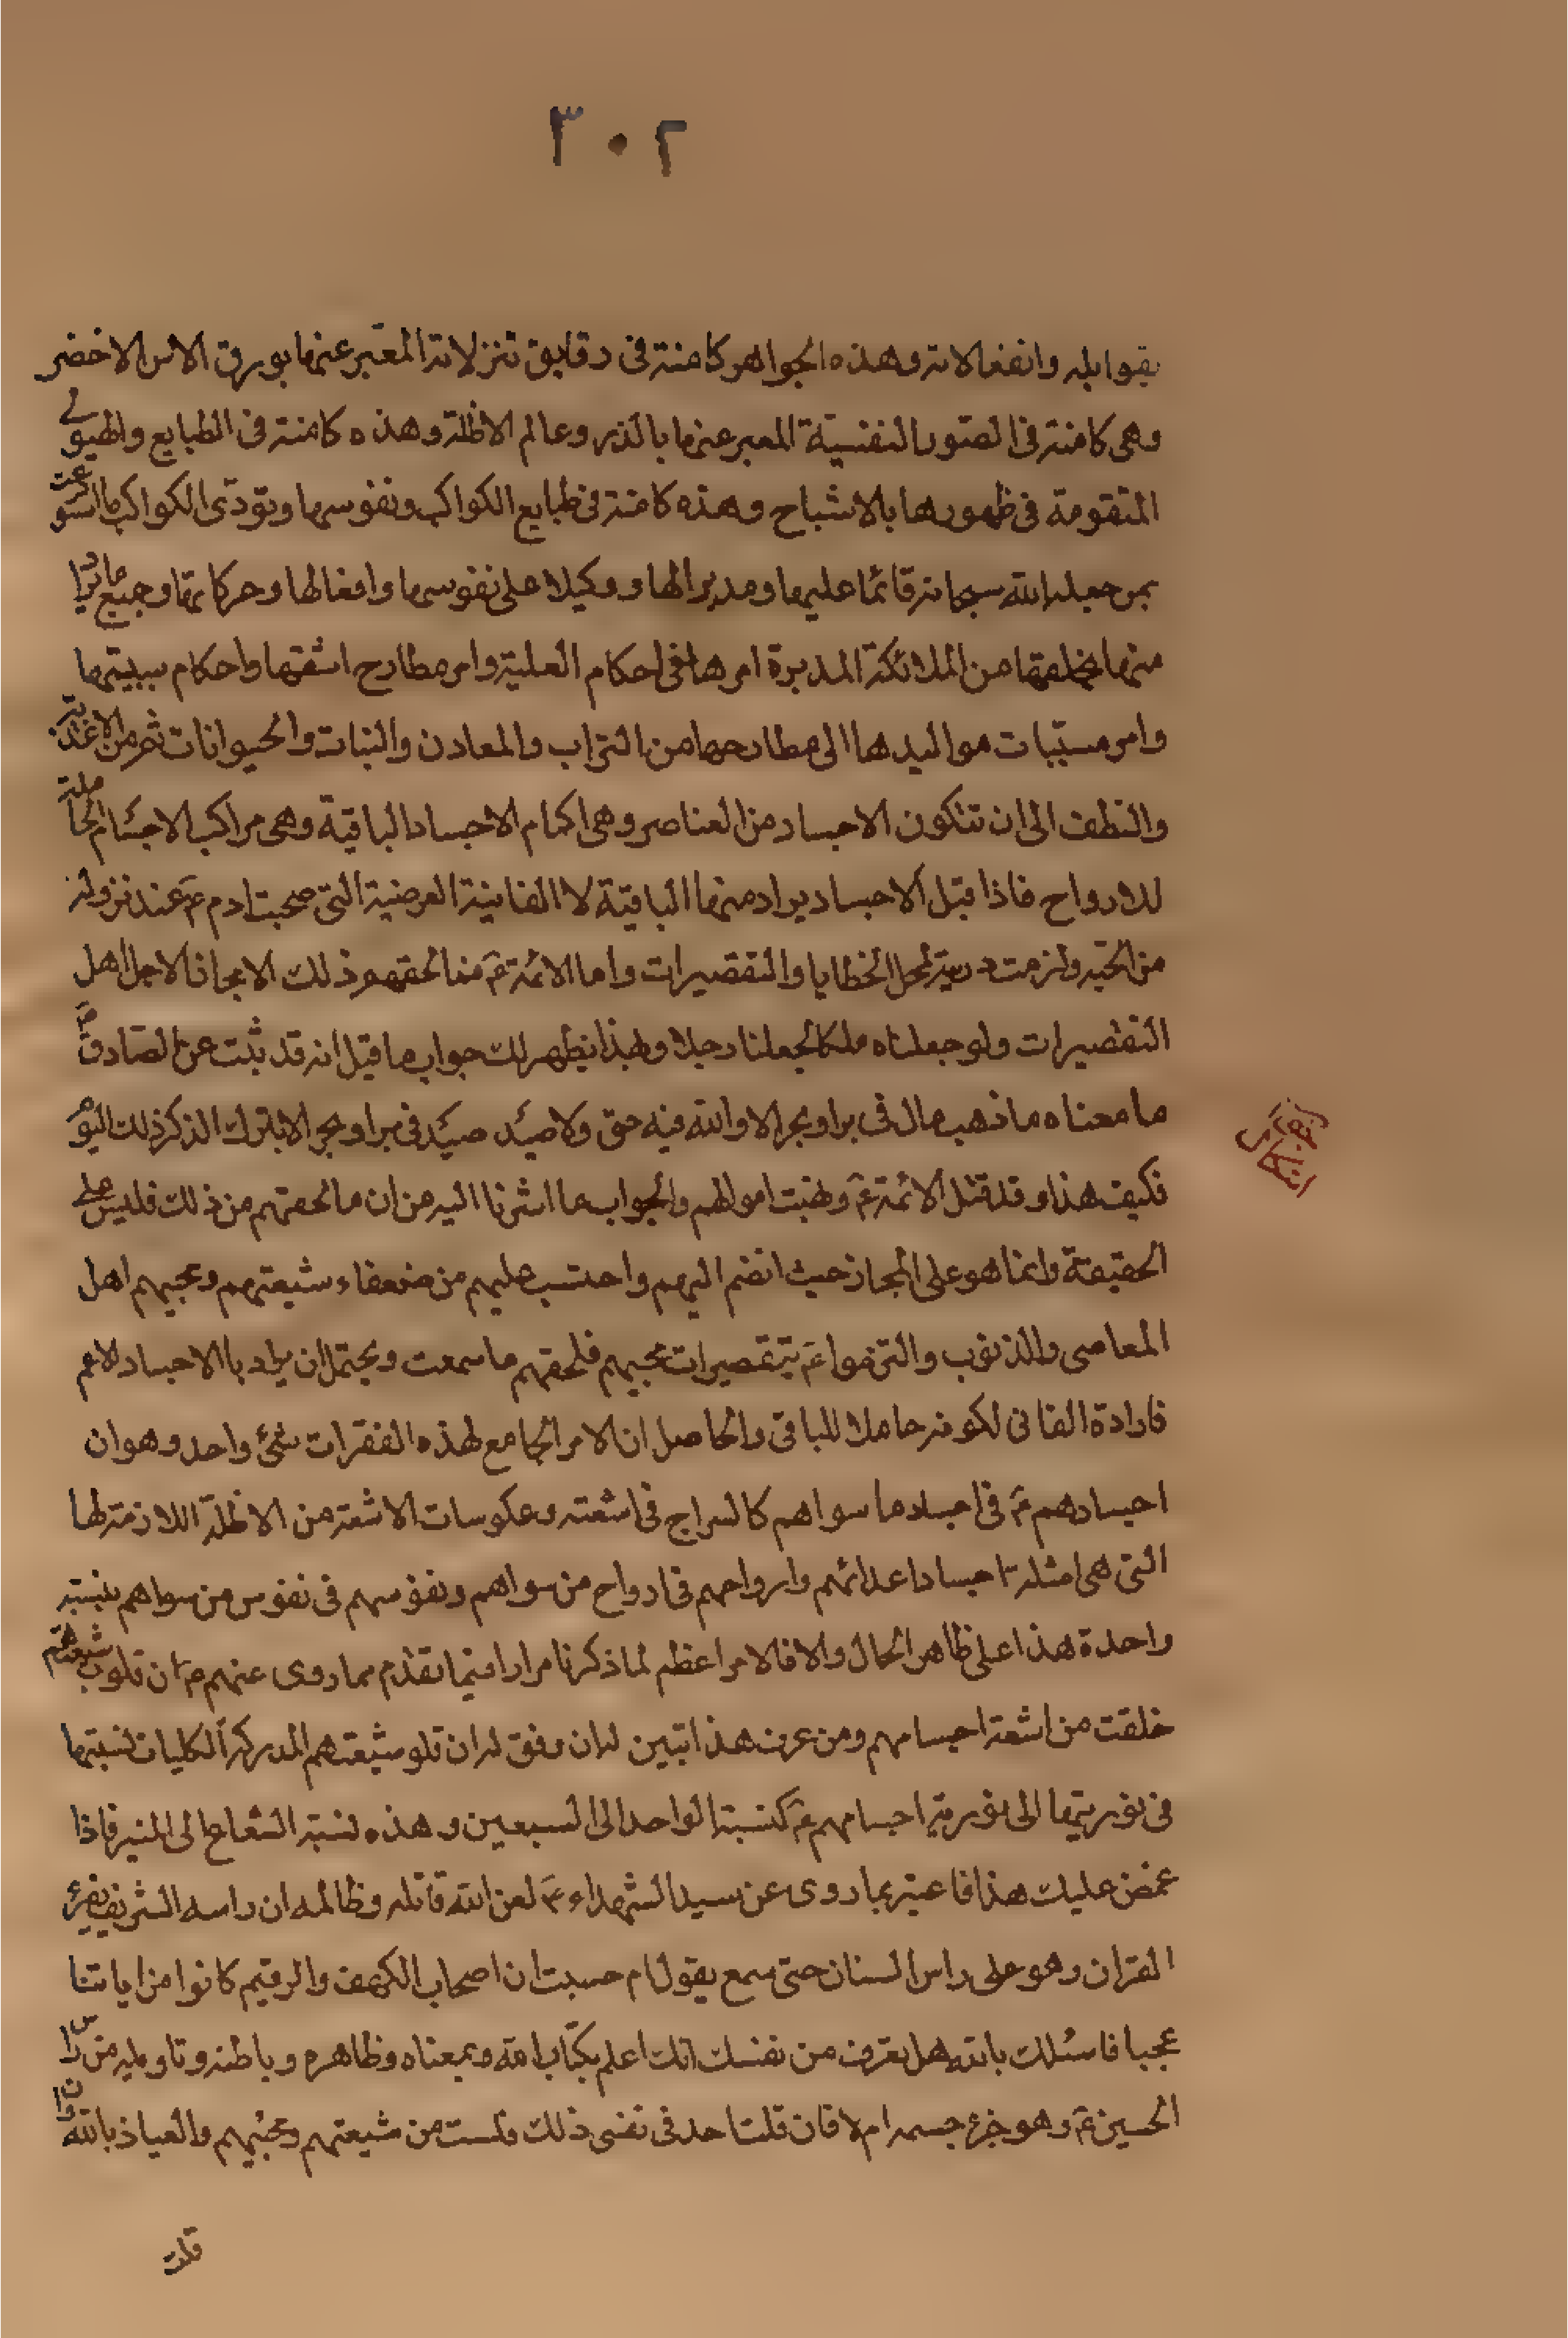 ٣٠٢
بقوابله وانفعالاته وهذه الجواهر كامنة فى دقايق تنزلاته المعبر عنها بورق الاس الاخضر
وهى كامنة فى الصور النفسية المعبر عنها بالذر وعالم الاظلة وهذه كامنة فى الطبايع والهيولى
المتقومة فى ظهورها بالاشباح وهذه كامنة فى طبايع الكواكب ونفوسها وتودى الكواكب ما استودعت
بمن جعله الله سبحانه قائما عليها ومدبرا لها ووكيلا على نفوسها وافعالها وحركاتها وجميع ما يراد
منها بخلقها من الملائكة المدبرة امرها فى احكام العلية وامر مطارح اشعتها واحكام سببيتها
وامر مسببات مواليدها الى مطارحها من التراب والمعادن والنبات والحيوانات ثم من الاغذية
والنطف الى ان تتكون الاجساد من العناصر وهى اكمام الاجساد الباقية وهى مراكب الاجسام الحاملة
للارواح فاذا قيل الاجساد يراد منها الباقية لا الفانية العرضية التى صحبت ادم ع عند نزوله
من الجنة ولزمت ذريته لمحل الخطايا والتقصيرات واما الائمة ع فما لحقهم ذلك الا مجازا لاجل اهل
التقصيرات ولو جعلناه ملكا لجعلناه رجلا ولهذا يظهر لك جواب ما قيل انه قد ثبت عن الصادق ع
ما معناه ما ذهب مال فى بر او بحر الا والله فيه حق ولا صيد صيد فى بر او بحر الا بترك الذكر ذلك اليوم
فكيف هذا وقد قتل الائمة ع ونهبت اموالهم والجواب ما اشرنا اليه من ان ما لحقهم من ذلك فليس على
الحقيقة وانما هو على المجاز حيث انضم اليهم واحتسب عليهم من ضعفاء شيعتهم ومحبيهم اهل
المعاصى والذنوب والتزموا ع بتقصيرات محبيهم فلحقهم ما سمعت ويحتمل ان يراد بالاجساد الاعم
فارادة الفانى لكونه حاملا للباقى والحاصل ان الامر الجامع لهذه الفقرات شئ واحد وهو ان
اجسادهم ع فى اجساد ما سواهم كالسراج فى اشعته وعكوسات الاشعة من الاظلة اللازمة لها
التى هى امثلة اجساد اعدائهم وارواحهم فى ارواح من سواهم ونفوسهم فى نفوس من سواهم بنسبة
واحدة هذا على ظاهر الحال والا فالامر اعظم لما ذكرنا مرارا فيما تقدم مما روى عنهم ع ان قلوب شيعتهم
خلقت من اشعة اجسامهم ومن عرف هذا تبين له ان وفق له ان قلوب شيعتهم المدركة الكليات نسبتها
فى نوريتها الى نورية اجسامهم ع كنسبة الواحد الى السبعين وهذه نسبة الشعاع الى المنير فاذا
غمض عليك هذا فاعتبر بما روى عن سيد الشهداء ع لعن الله قاتله وظالمه ان راسه الشريف يقرئ
القران وهو على راس السنان حتى سمع يقول ام حسبت ان اصحاب الكهف والرقيم كانوا من اياتنا
عجبا فاسئلك بالله هل تعرف من نفسك انك اعلم بكتاب الله وبمعناه وظاهره وباطنه وتاويله من راس
الحسين ع وهو جزء جسمه ام لا فان قلت احد فى نفسى ذلك فلست من شيعتهم ومحبيهم والعياذ بالله وان
قلت